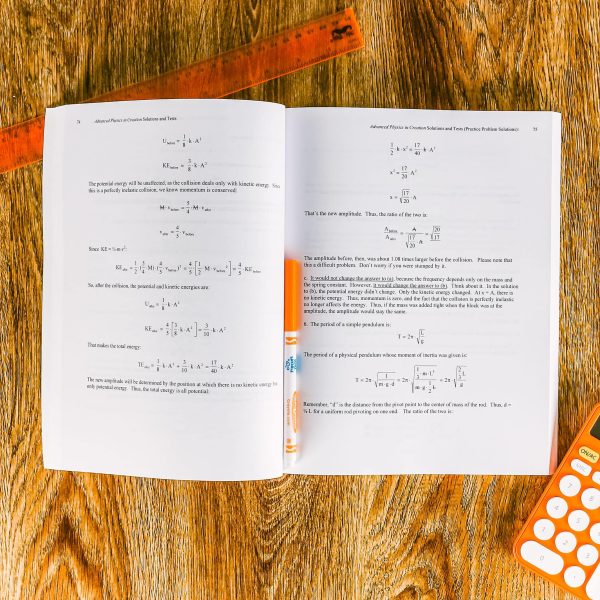 74 Advanced Physics in Creation Solutions and Tests
U_before = 1/8 · k · A²
KE_before = 3/8 · k · A²
The potential energy will be unaffected, as the collision deals only with kinetic energy. Since
this is a perfectly inelastic collision, we know momentum is conserved:
M · v_before = 5/4 · M · v_after
v_after = 4/5 · v_before
Since KE = ½·m·v²:
KE_after = 1/2 · (5/4 · M) · (4/5 · v_before)² = 4/5 · [1/2 · M · v_before²] = 4/5 · KE_before
So, after the collision, the potential and kinetic energies are:
U_after = 1/8 · k · A²
KE_after = 4/5 · [3/8 · k · A²] = 3/10 · k · A²
That makes the total energy:
TE_after = 1/8 · k · A² + 3/10 · k · A² = 17/40 · k · A²
The new amplitude will be determined by the position at which there is no kinetic energy but
only potential energy. Thus, the total energy is all potential:
Advanced Physics in Creation Solutions and Tests (Practice Problem Solutions) 75
1/2 · k · x² = 17/40 · k · A²
x² = 17/20 · A²
x = √(17/20) · A
That's the new amplitude. Thus, the ratio of the two is:
A_before/A_after = A/(√(17/20) · A) = √(20/17)
The amplitude before, then, was about 1.08 times larger before the collision. Please note that
this is a difficult problem. Don't worry if you were stumped by it.
c. It would not change the answer to (a), because the frequency depends only on the mass and
the spring constant. However, it would change the answer to (b). Think about it. In the solution
to (b), the potential energy didn't change. Only the kinetic energy changed. At x = A, there is
no kinetic energy. Thus, momentum is zero, and the fact that the collision is perfectly inelastic
no longer affects the energy. Thus, if the mass was added right when the block was at the
amplitude, the amplitude would stay the same.
6. The period of a simple pendulum is:
T = 2π · √(L/g)
The period of a physical pendulum whose moment of inertia was given is:
T = 2π · √(I/(m · g · d)) = 2π · √((1/3 · m · L²)/(m · g · 1/2 · L)) = 2π · √((2/3 · L)/g)
Remember, "d" is the distance from the pivot point to the center of mass of the rod. Thus, d =
½·L for a uniform rod pivoting on one end. The ratio of the two is:
ON/AC
7
8
4
5
1
2
0